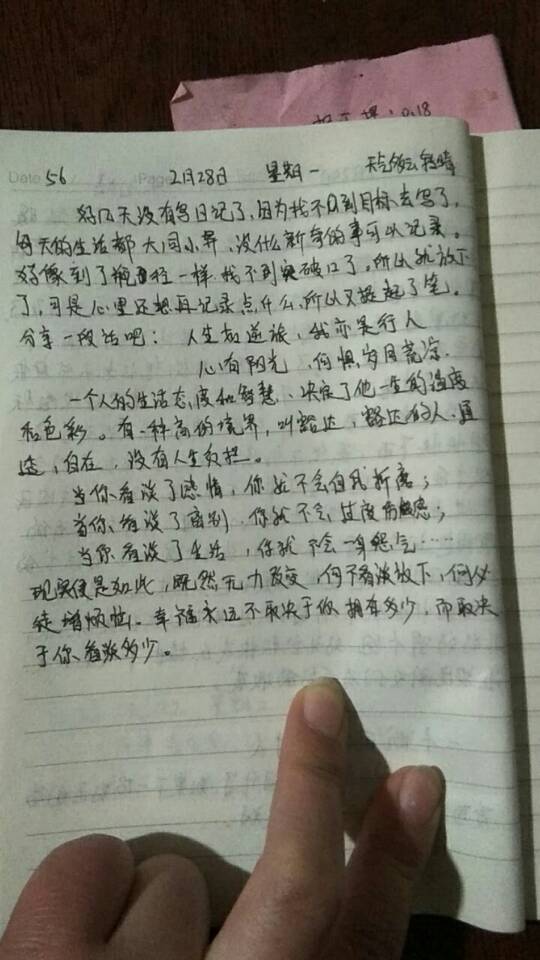 0.18
Date 56 Page 2月28日 星期一 天气多云转晴
好几天没有写日记了,因为找不到目标去写了,
每天的生活都大同小异,没什么新奇的事可以记录。
好像到了瓶颈一样,找不到突破口了。所以就放下
了,可是心里还想再记录点什么,所以又提起了笔。
分享一段话吧: 人生如逆旅,我亦是行人
心有阳光,何惧岁月荒凉.
一个人的生活态度和智慧、决定了他一生的温度
和色彩。有一种高的境界,叫豁达,豁达的人.通
透,自在,没有人生负担。
当你看淡了感情,你就不会自我折磨;
当你看淡了离别,你就不会过度伤感;
当你看淡了生活,你就不会一身怨气……
现实便是如此,既然无力改变,何不看淡放下,何必
徒增烦恼。幸福永远不取决于你拥有多少,而取决
于你看淡多少。